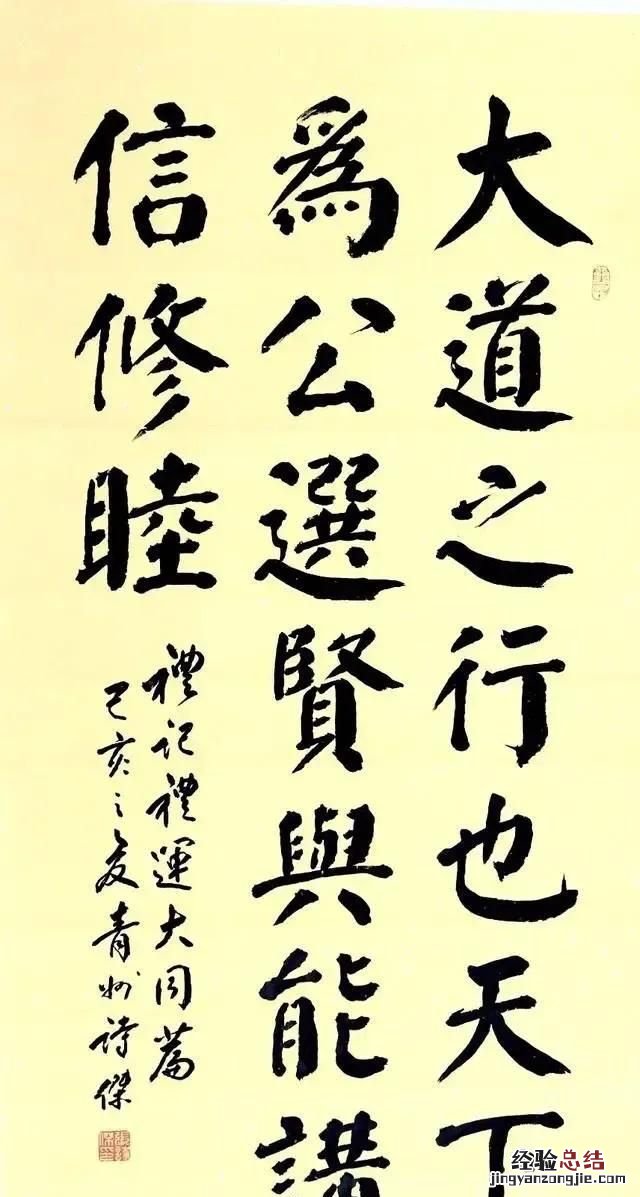 大道之行也天下
為公選賢與能講
信修睦
禮記禮運大同篇
己亥之夏青州詩傑
经验总结
jingyanzongjie.com